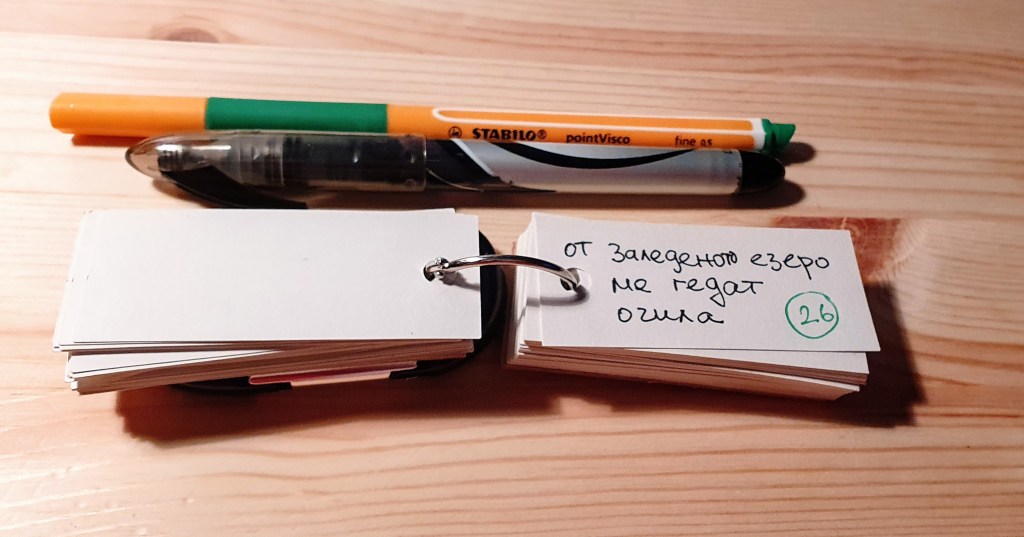 STABILO® pointVisco fine 0,5
от заледеното езеро
ме гедат
очила
26